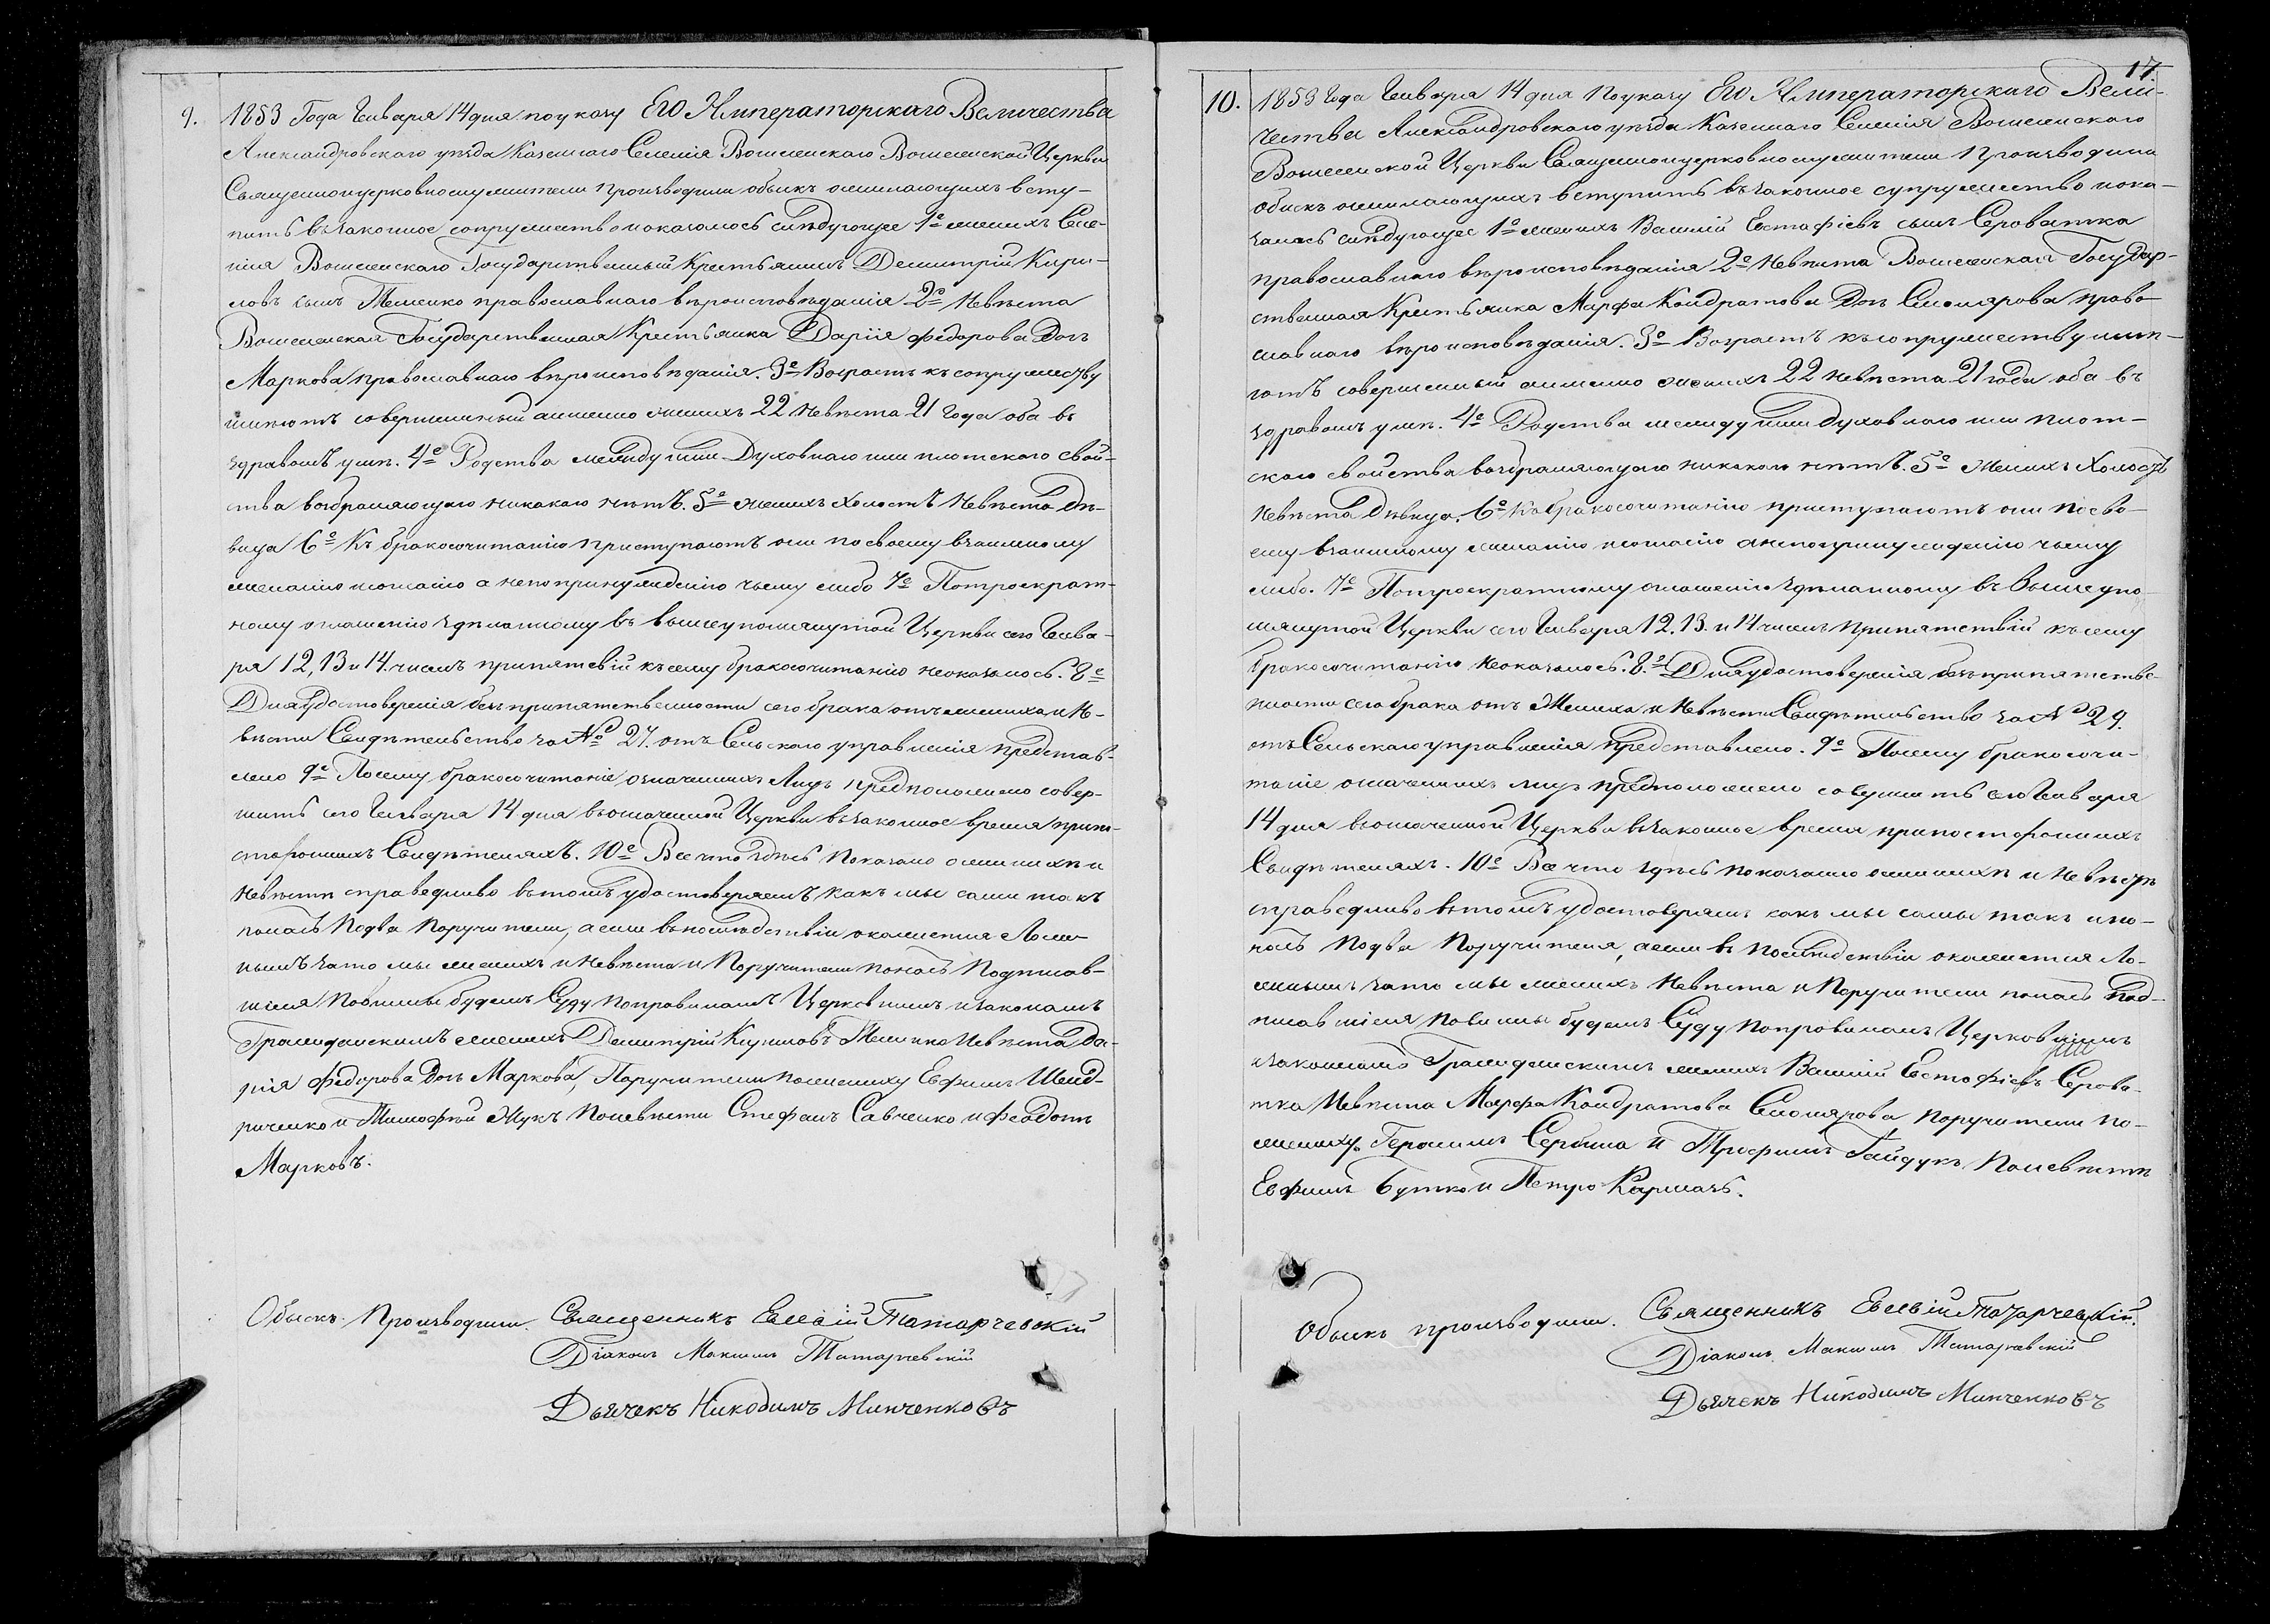 9.
1853 Года Генваря 14 дня по указу Его Императорскаго Величества
Александровскаго уѣзда Казеннаго Селенія Вошенскаго Вошенской Церкви
Священноцерковнослужители производили обыскъ о желающихъ всту-
пить въ законное сопружество и оказалось слѣдующее 1е женихъ Селе-
нія Государственный Крестьянинъ Демитрій Кири-
ловъ сынъ православнаго вѣроисповѣданія 2е Невѣста
Государственная Крестьянка Дарія Федорова Дочь
Маркова православнаго вѣроисповѣданія. 3е Возрастъ къ сопружеству
имѣютъ совершенный а именно женихъ 22 Невѣста 21 года оба въ
здравомъ умѣ. 4е Родства между ими Духовнаго или плотскаго свой-
ства возбраняющаго никакого нѣтъ. 5е женихъ холостъ Невѣста дѣ-
вица 6е Къ бракосочитанію приступаютъ они по своему взаимному
желанію и согласію а не по принужденію чьему либо 7е По троекрат-
ному оглашенію здѣланному въ вышеупомянутой Церкви сего Генва-
ря 12, 13 и 14. числъ припятсвій къ сему бракосочитанію неоказалось. 8е
Для удостоверенія безъ припятственности сего брака отъ жениха и Не-
вѣсти Свидѣтельство за № 27. отъ Сельскаго управленія представ-
лено 9е Посему бракосочитаніе означенныхъ Лицъ предположено совер-
шить сего Генваря 14 дня въ означенной Церкви въ законное время при по-
стороннихъ Свидѣтеляхъ. 10е Все что здѣсь показано о женихѣ и
Невѣсти справедливо въ томъ удостоверяемъ какъ мы сами такъ
по два Поручители, а если въ послѣдствіи окажется Лож-
нымъ за то мы женихъ и Невѣста и Поручители Подписав-
шіеся Повинны будемъ Суду по правиламъ Церковнымъ и законамъ
Гражданскимъ женихъ Демитрій Кириловъ Невѣста Да-
рія Федорова Дочь Маркова, Поручители по жениху Ефимъ Шенд-
риченко и Тимофей Жукъ По невѣсти Стефанъ Савченко и Феодотъ
Марковъ.
Обыскъ Производили. Священникъ Евсевій Татарчевскій
Діаконъ Максимъ Татарчевскій
Дьячекъ Никодимъ Минченковъ
17
10.
1853 года Генваря 14 дня По указу Его Императорскаго Вели-
чества Александровскаго уѣзда Казеннаго Селенія Вошенскаго
Вошенской Церкви Священноцерковнослужители Производили
обискъ о желающихъ вступить въ законное супружество и ока-
залось слѣдующее 1е женихъ Василій Евстафіевъ сынъ Сероватка
православнаго вѣроисповѣданія 2е Невѣста Государ-
ственная Крестьянка Марфа Кондратова Дочь Столярова право-
славнаго вѣроисповѣданія. 3е Возрастъ къ сопружеству имѣ-
ютъ совершенный а именно женихъ 22 Невѣста 21 года оба въ
здравомъ умѣ. 4е Родства между ими духовнаго или плот-
скаго свойства возбраняющаго никакого нѣтъ. 5е Женихъ Холостъ
Невѣста Дѣвица. 6е Къ бракосочитанію приступаютъ они по сво-
ему взаимному желанію и согласію а не по принужденію чьему
либо. 7е По троекратному оглашенію здѣланному въ вышеупо-
мянутой Церкви сего Генваря 12. 13. и 14 числъ Припятствій къ сему
бракосочитанію Неоказалось. 8.е Для удостоверенія безъ припятстве-
ности сего брака отъ Жениха и Невѣсти Свидѣтельство за № 29.
отъ Сельскаго управленія представлено. 9е Посему бракосочи-
таніе означенныхъ лицъ предположено совершить сего Генваря
14 дня въ означенной Церкви въ законное время при постороннихъ
Свидѣтеляхъ. 10е Все что здѣсь показано о женихѣ и Невѣстѣ
справедливо въ томъ удостоверяемъ какъ мы самы такъ и по
по два Поручителя, а если въ Послѣдствіи окажется Ло-
жнымъ за то мы женихъ Невѣста и Поручители Под-
писавшіеся Повинны будемъ Суду по правиламъ Церковнымъ
и законамъ Гражданскимъ женихъ Василій Евстафіевъ Серова-
тка Невѣста Марфа Кондратова Столярова Поручители по
жениху Герасимъ Сербина и Трофимъ Гайдукъ По невѣсти
Евфимъ Бутко и Петро Кармазь.
Обыскъ производили. Священникъ Евсевій Татарчевскій.
Діаконъ Максимъ Татарчевскій
Дьячекъ Никодимъ Минченковъ